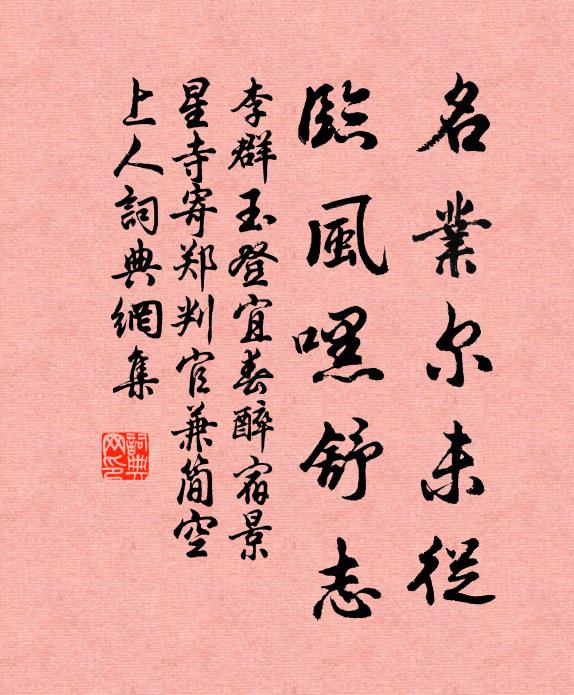 名業尔未從
臨風嘿舒志
李群玉登宜春醉宿景
星寺寄郑判官兼简空
上人詞典網集
詞典网印